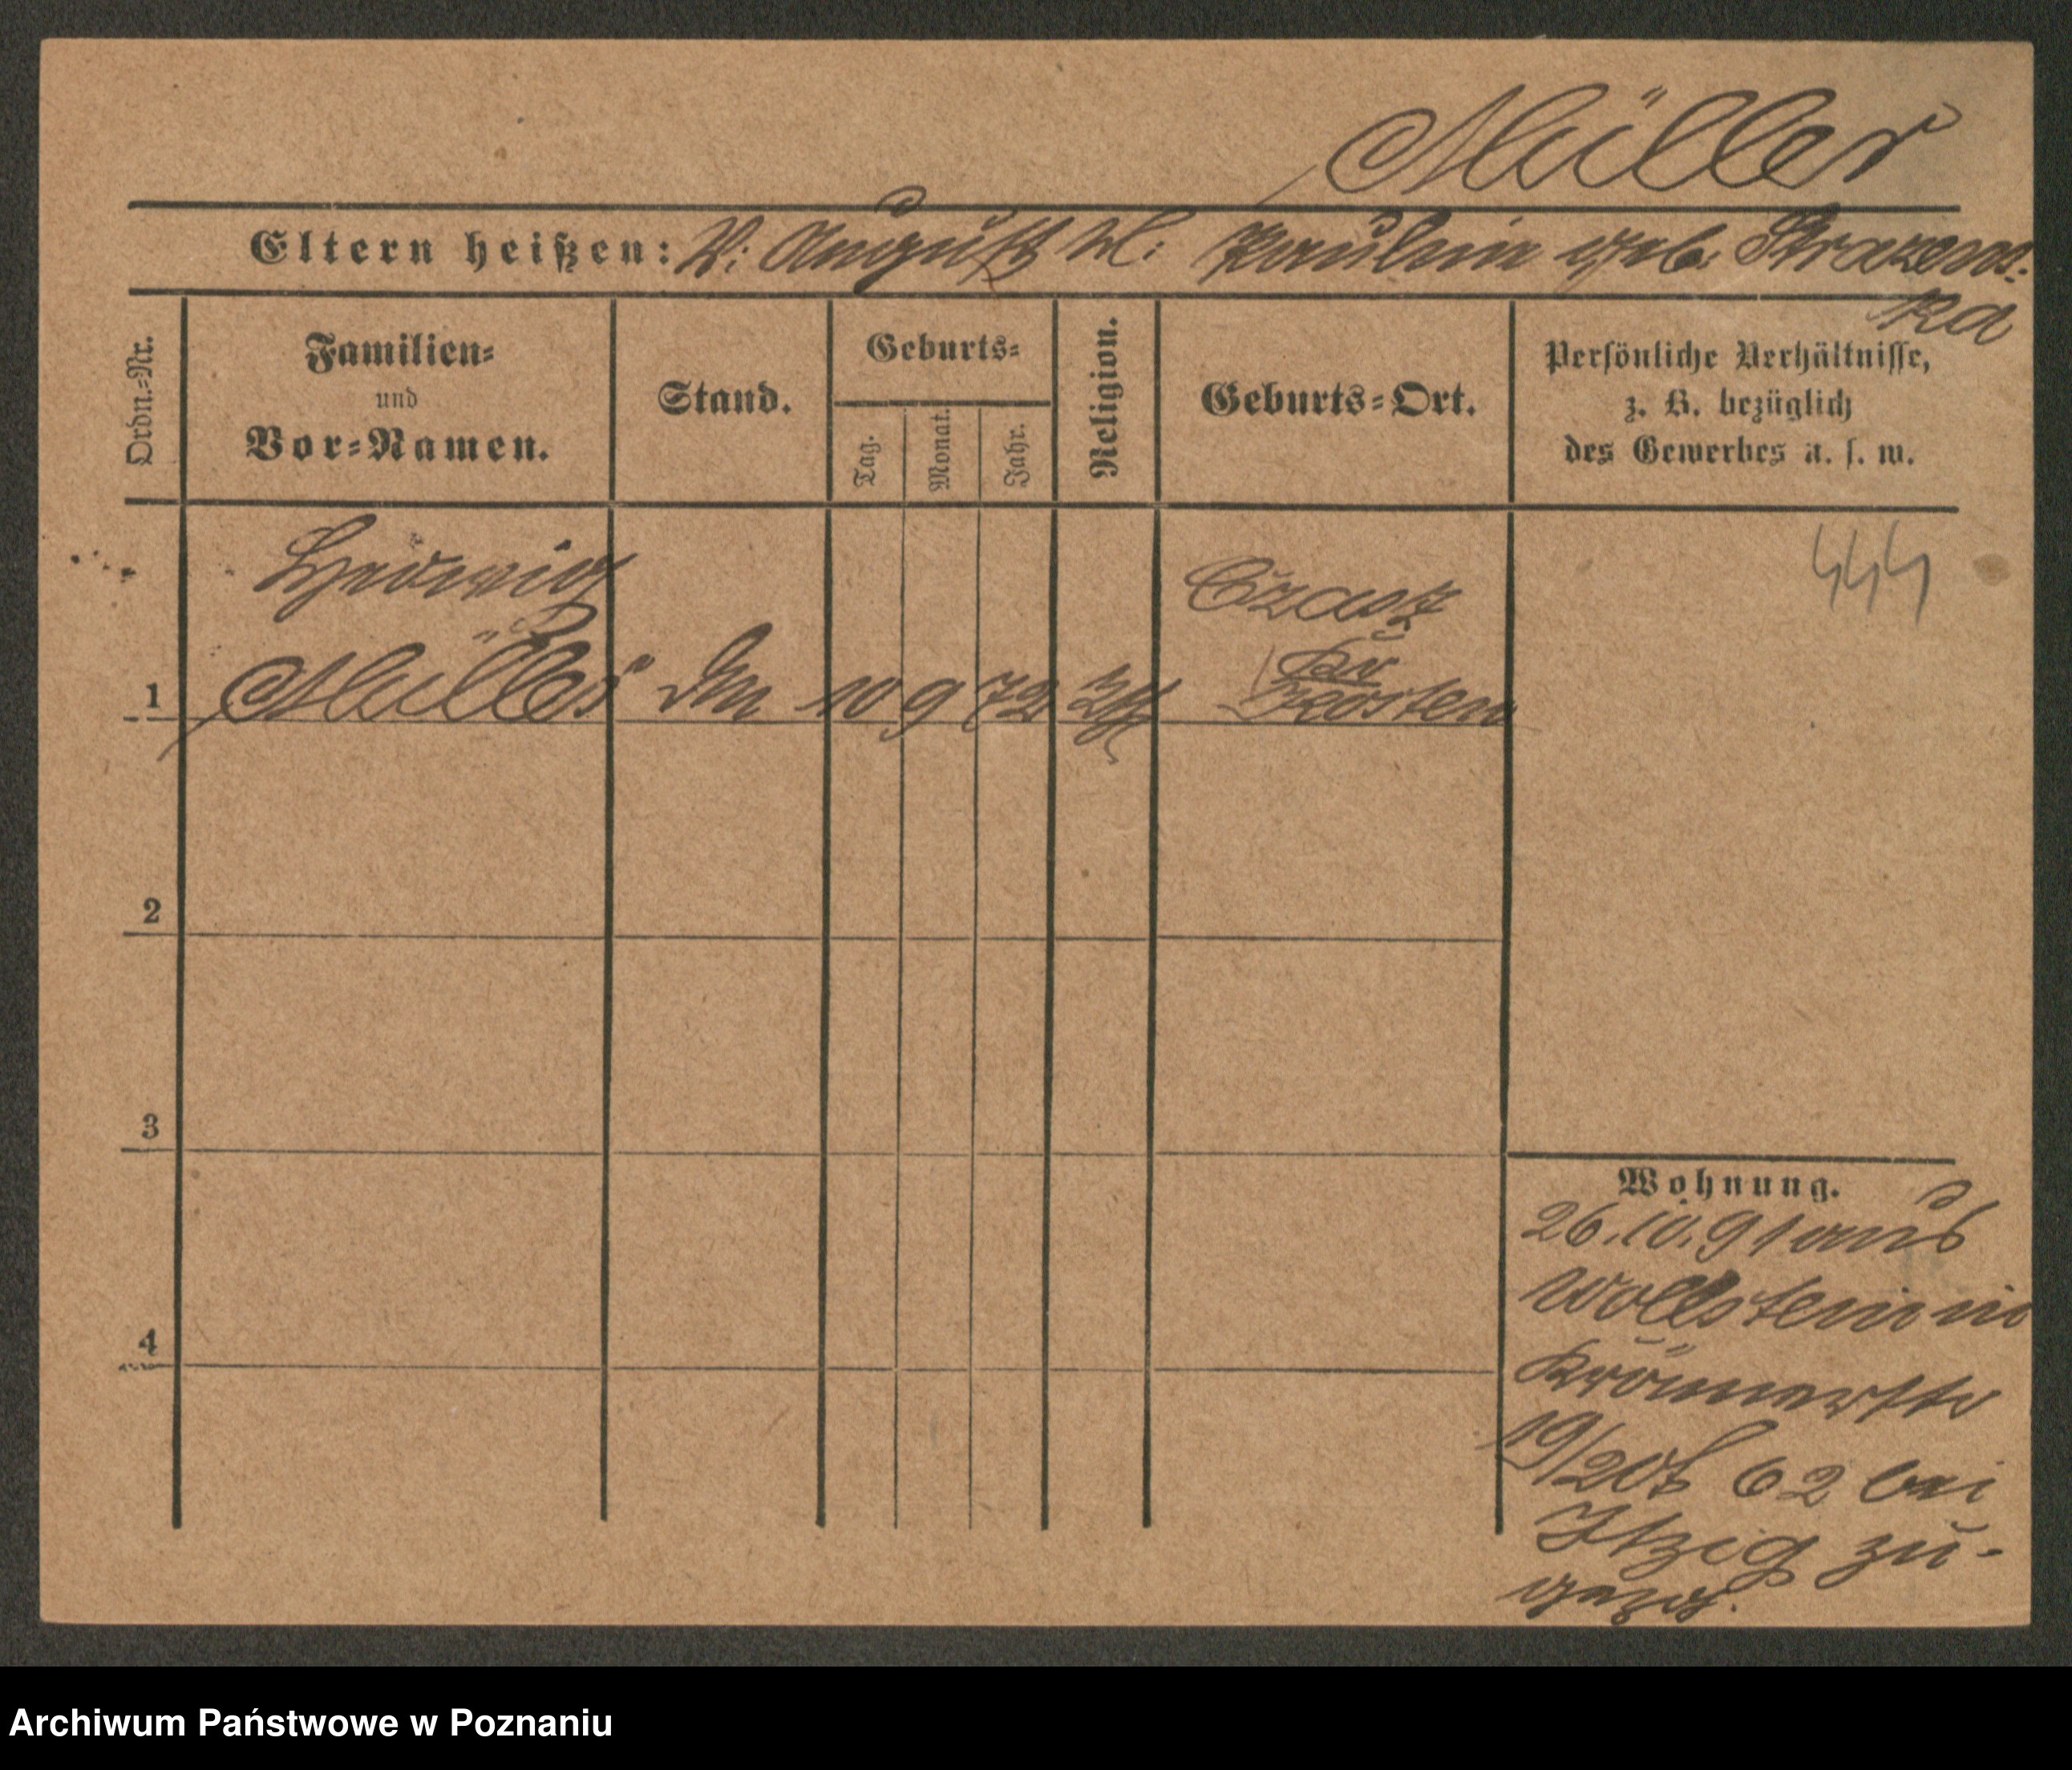 Müller
Eltern heißen: V: August M: Pauline geb. Strazews-
ka
Ordn.-Nr.
Familien-
und
Vor-Namen.
Stand.
Geburts-
Tag.
Monat.
Jahr.
Religion.
Geburts-Ort.
Persönliche Verhältnisse,
z. B. bezüglich
des Gewerbes u. s. w.
Hedwig
Müller
1
10 9 72
Kr
Kosten
2
3
4
Wohnung.
26.10.91 aus
Wollstein in
19/20 62 bei
Itzig zu-
gezg.
Archiwum Państwowe w Poznaniu